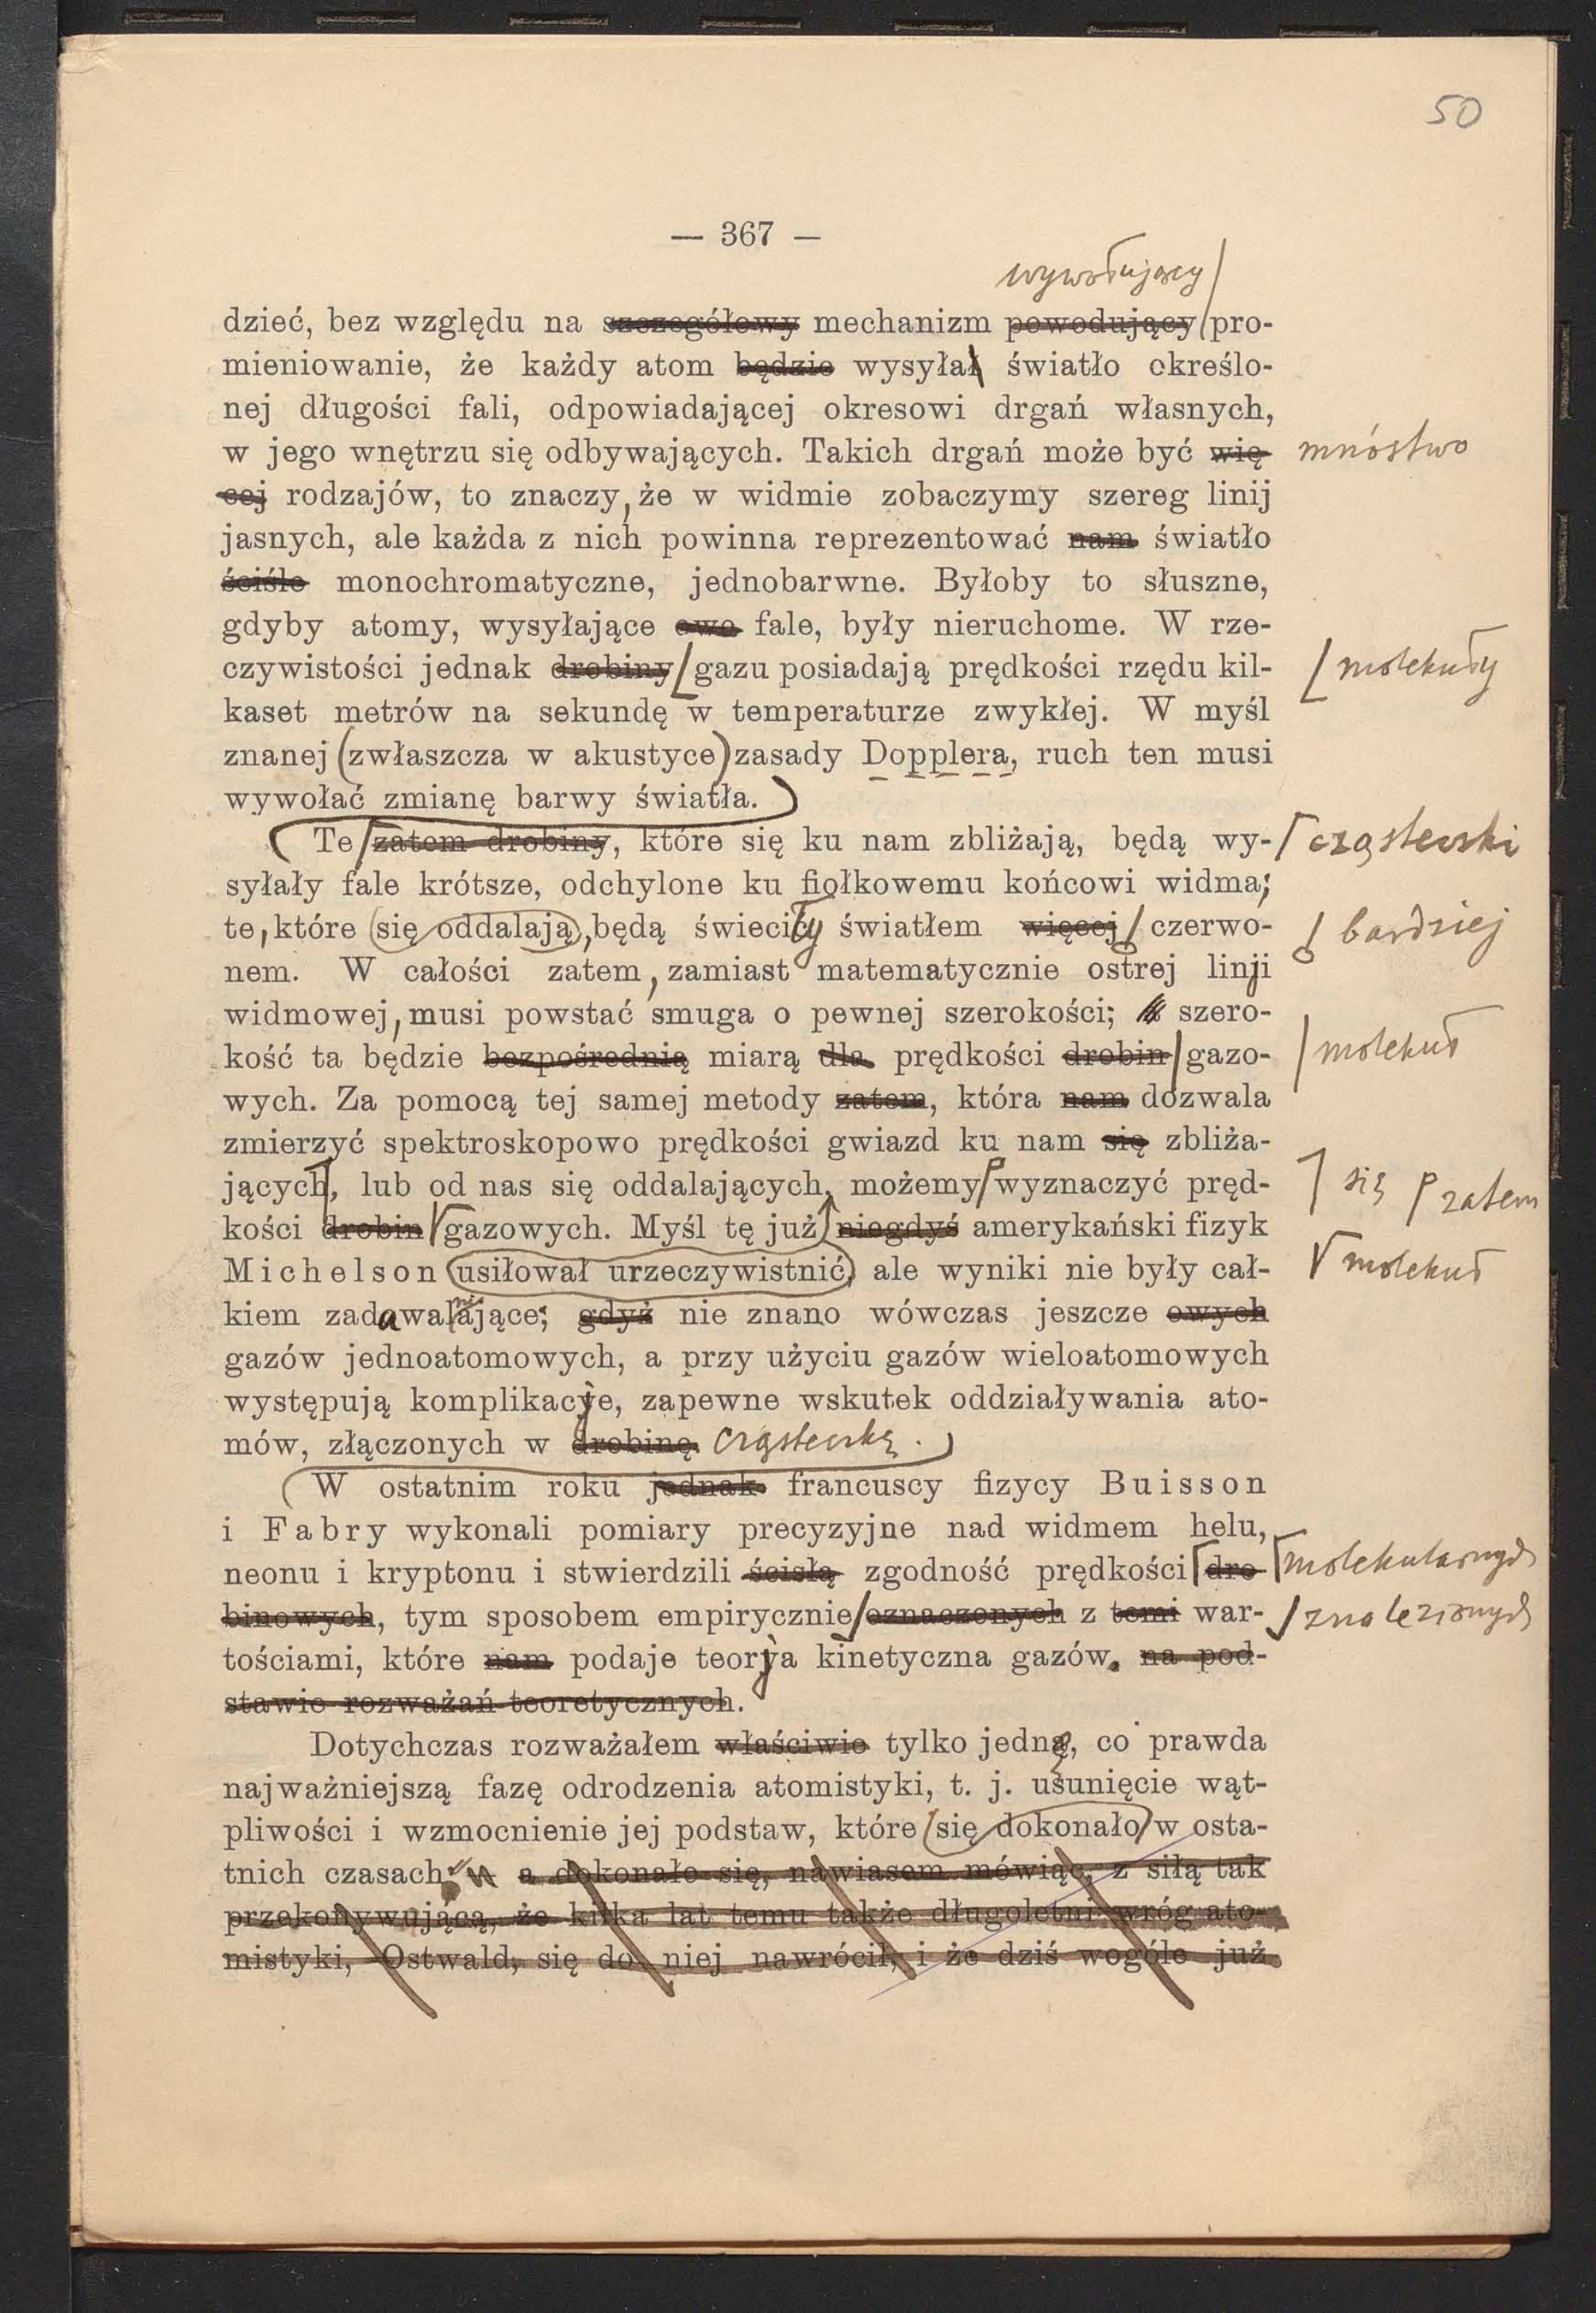 50
— 367 —
wywołujący
dzieć, bez względu na szczegółowy mechanizm powodujący pro-
mieniowanie, że każdy atom będzie wysyłał światło określo-
nej długości fali, odpowiadającej okresowi drgań własnych,
w jego wnętrzu się odbywających. Takich drgań może być wię- mnóstwo
cej rodzajów, to znaczy, że w widmie zobaczymy szereg linij
jasnych, ale każda z nich powinna reprezentować nam światło
ściśle monochromatyczne, jednobarwne. Byłoby to słuszne,
gdyby atomy, wysyłające owe fale, były nieruchome. W rze-
czywistości jednak drobiny gazu posiadają prędkości rzędu kil- molekuły
kaset metrów na sekundę w temperaturze zwykłej. W myśl
znanej (zwłaszcza w akustyce) zasady Dopplera, ruch ten musi
wywołać zmianę barwy światła.
Te zatem drobiny, które się ku nam zbliżają, będą wy- cząsteczki
syłały fale krótsze, odchylone ku fiołkowemu końcowi widma;
te, które się oddalają, będą świeciły światłem więcej czerwo- bardziej
nem. W całości zatem, zamiast matematycznie ostrej linji
widmowej, musi powstać smuga o pewnej szerokości; szero-
kość ta będzie bezpośrednią miarą dla prędkości drobin gazo- molekuł
wych. Za pomocą tej samej metody zatem, która nam dozwala
zmierzyć spektroskopowo prędkości gwiazd ku nam się zbliża-
jących, lub od nas się oddalających, możemy wyznaczyć pręd- się zatem
kości drobin gazowych. Myśl tę już niegdyś amerykański fizyk
Michelson usiłował urzeczywistnić, ale wyniki nie były cał- molekuł
kiem zadawalające; gdyż nie znano wówczas jeszcze owych
gazów jednoatomowych, a przy użyciu gazów wieloatomowych
występują komplikacye, zapewne wskutek oddziaływania ato-
mów, złączonych w drobinę. cząsteczkę.
W ostatnim roku jednak francuscy fizycy Buisson
i Fabry wykonali pomiary precyzyjne nad widmem helu,
neonu i kryptonu i stwierdzili ścisłą zgodność prędkości dro- molekularnych
binowych, tym sposobem empirycznie oznaczonych z temi war- znalezionych
tościami, które nam podaje teorya kinetyczna gazów. na pod-
stawie rozważań teoretycznych.
Dotychczas rozważałem właściwie tylko jedną, co prawda
najważniejszą fazę odrodzenia atomistyki, t. j. usunięcie wąt-
pliwości i wzmocnienie jej podstaw, które się dokonało w osta-
tnich czasach a dokonało się, nawiasem mówiąc, z siłą tak
przekonywującą, że kilka lat temu także długoletni wróg ato-
mistyki, Ostwald, się do niej nawrócił, i że dziś wogóle już